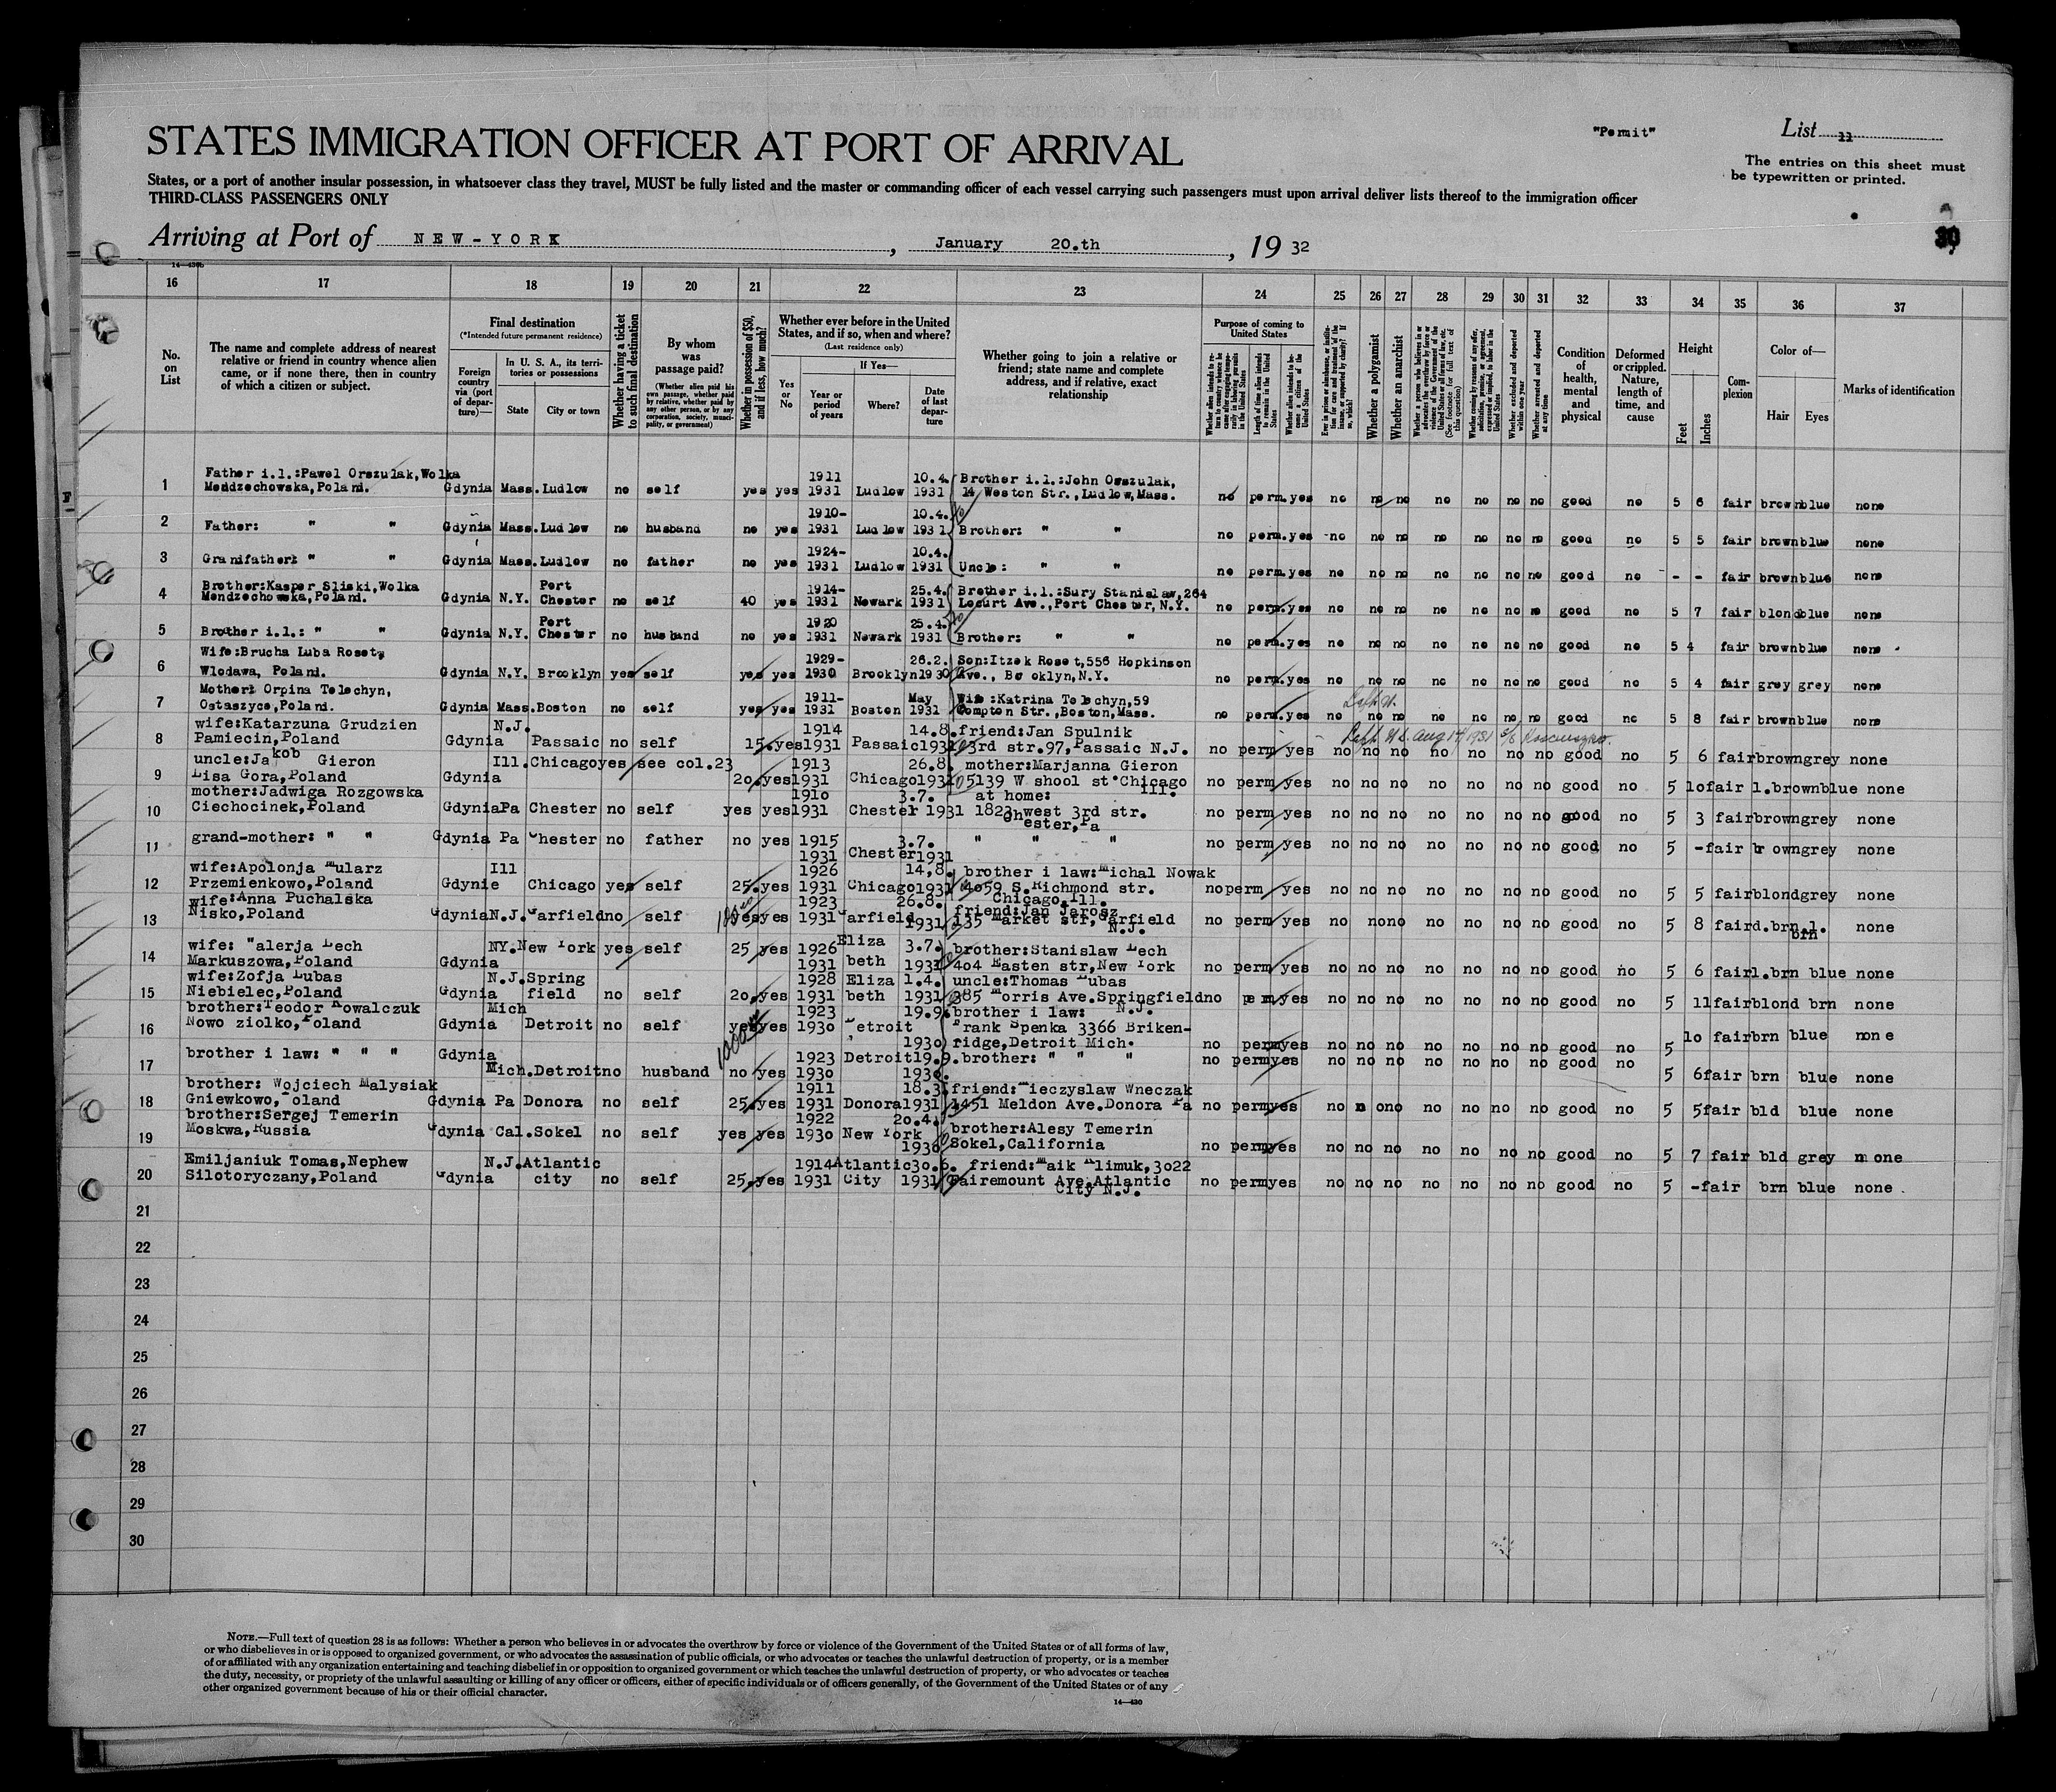 "Permit"
List 11
STATES IMMIGRATION OFFICER AT PORT OF ARRIVAL
The entries on this sheet must
be typewritten or printed.
States, or a port of another insular possession, in whatsoever class they travel, MUST be fully listed and the master or commanding officer of each vessel carrying such passengers must upon arrival deliver lists thereof to the immigration officer
THIRD-CLASS PASSENGERS ONLY
30
Arriving at Port of NEW-YORK, January 20.th, 19 32
16 17 18 19 20 21 22 23 24 25 26 27 28 29 30 31 32 33 34 35 36 37
No. on List
The name and complete address of nearest
relative or friend in country whence alien
came, or if none there, then in country
of which a citizen or subject.
Final destination
(*Intended future permanent residence)
Foreign country via (port of departure)—
In U. S. A., its territories or possessions
State
City or town
Whether having a ticket to such final destination
By whom was passage paid?
(Whether alien paid his own passage, whether paid by relative, whether paid by any other person, or by any corporation, society, municipality, or government)
Whether in possession of $50, and if less, how much?
Whether ever before in the United
States, and if so, when and where?
(Last residence only)
Yes or No
If Yes—
Year or period of years
Where?
Date of last departure
Whether going to join a relative or
friend; state name and complete
address, and if relative, exact
relationship
Purpose of coming to
United States
Whether alien intends to return to country whence he came after engaging temporarily in laboring pursuits in the United States
Length of time alien intends to remain in the United States
Whether alien intends to become a citizen of the United States
Ever in prison or almshouse, or institution for care and treatment of the insane, or supported by charity? If so, which?
Whether a polygamist
Whether an anarchist
Whether a person who believes in or advocates the overthrow by force or violence of the Government of the United States or all forms of law, etc. (See footnote for full text of this question)
Whether coming by reasons of any offer, solicitation, promise, or agreement, expressed or implied, to labor in the United States
Whether excluded and deported within one year
Whether arrested and deported at any time
Condition of health, mental and physical
Deformed or crippled. Nature, length of time, and cause
Height
Feet
Inches
Complexion
Color of—
Hair
Eyes
Marks of identification
1 Father i.l.:Pawel Orszulak,Wolka Mendzechowska,Poland. Gdynia Mass. Ludlow no self yes yes 1911 1931 Ludlow 10.4. 1931 Brother i.l.:John Orszulak, 14 Weston Str.,Ludlow,Mass. no perm. yes no no no no no no no good no 5 6 fair brown blue none
2 Father: " " Gdynia Mass. Ludlow no husband no yes 1910- 1931 Ludlow 10.4. 1931 Brother: " " no perm. yes no no no no no no no good no 5 5 fair brown blue none
3 Granifather: " " Gdynia Mass. Ludlow no father no yes 1924- 1931 Ludlow 10.4. 1931 Uncle: " " no perm. yes no no no no no no no good no - - fair brown blue none
4 Brother:Kasper Sliski,Wolka Mendzechowska,Poland. Gdynia N.Y. Port Chester no self 40 yes 1914- 1931 Newark 25.4. 1931 Brother i.l.:Sury Stanislaw,264 Locurt Ave.,Port Chester,N.Y. no perm. yes no no no no no no no good no 5 7 fair blond blue none
5 Brother i.l.: " " Gdynia N.Y. Port Chester no husband no yes 1920 1931 Newark 25.4. 1931 Brother: " " no perm. yes no no no no no no no good no 5 4 fair brown blue none
6 Wife:Brucha Luba Roset, Wlodawa, Poland. Gdynia N.Y. Brooklyn yes self yes yes 1929- 1930 Brooklyn 26.2. 1930 Son:Itzek Roset,556 Hopkinson Ave., Brooklyn,N.Y. no perm. yes no no no no no no no good no 5 4 fair grey grey none
7 Mother: Orpina Telechyn, Ostaszyce,Poland. Gdynia Mass. Boston no self yes yes 1911- 1931 Boston May 1931 Wife:Katrina Telechyn,59 Compton Str.,Boston,Mass. no perm. yes no no no no no no no good no 5 8 fair brown blue none
8 wife:Katarzuna Grudzien Pamiecin,Poland Gdynia N.J. Passaic no self 15. yes 1914 1931 Passaic 14.8. 1931 friend:Jan Spulnik 3rd str.97,Passaic N.J. no perm yes no no no no no no no good no 5 6 fair brown grey none
9 uncle:Jakob Gieron Lisa Gora,Poland Gdynia Ill. Chicago yes see col.23 20. yes 1913 1931 Chicago 26.8. 1931 mother:Marjanna Gieron 5139 W shool st.Chicago Ill. no perm yes no no no no no no no good no 5 10 fair l.brown blue none
10 mother:Jadwiga Rozgowska Ciechocinek,Poland Gdynia Pa Chester no self yes yes 1910 1931 Chester 3.7. 1931 at home: 1823 west 3rd str. Chester,Pa no perm yes no no no no no no no good no 5 3 fair brown grey none
11 grand-mother: " " Gdynia Pa Chester no father no yes 1915 1931 Chester 3.7. 1931 " " " no perm yes no no no no no no no good no 5 - fair brown grey none
12 wife:Apolonja Mularz Przemienkowo,Poland Gdynie Ill Chicago yes self 25. yes 1926 1931 Chicago 14,8. 1931 brother i law:Michal Nowak 4059 S.Richmond str. Chicago,Ill. no perm yes no no no no no no no good no 5 5 fair blond grey none
13 wife:Anna Puchalska Nisko,Poland Gdynia N.J. Garfield no self yes yes 1923 1931 Garfield 26.8. 1931 friend:Jan Jarosz 135 Market str,Garfield N.J. no perm yes no no no no no no no good no 5 8 fair d.brn l.brn none
14 wife: "alerja Lech Markuszowa,Poland Gdynia NY. New York yes self 25 yes 1926 1931 Elizabeth 3.7. 1931 brother:Stanislaw Lech 404 Easten str,New York no perm yes no no no no no no no good no 5 6 fair l.brn blue none
15 wife:Zofja Lubas Niebielec,Poland Gdynia N.J. Springfield no self 20. yes 1928 1931 Elizabeth 1.4. 1931 uncle:Thomas Lubas 385 Morris Ave.Springfield N.J. no perm yes no no no no no no no good no 5 11 fair blond brn none
16 brother:Teodor Kowalczuk Nowo ziolko,Poland Gdynia Mich Detroit no self yes yes 1923 1930 Detroit 19.9. 1930 brother i law: Frank Spenka 3366 Brikenridge,Detroit Mich. no perm yes no no no no no no no good no 5 10 fair brn blue none
1000
17 brother i law: " " " Gdynia Mich. Detroit no husband no yes 1923 1930 Detroit 19.9. 1930. brother: " " " no perm yes no no no no no no no good no 5 6 fair brn blue none
18 brother: Wojciech Malysiak Gniewkowo,Poland Gdynia Pa Donora no self 25. yes 1911 1931 Donora 18.3. 1931 friend:Mieczyslaw Wneczak 1451 Meldon Ave.Donora Pa no perm yes no no no no no no no good no 5 5 fair bld blue none
19 brother:Sergej Temerin Moskwa,Russia Gdynia Cal. Sokel no self yes yes 1922 1930 New York 20.4. 1930 brother:Alesy Temerin Sokel,California no perm yes no no no no no no no good no 5 7 fair bld grey none
20 Emiljaniuk Tomas,Nephew Silotoryczany,Poland Gdynia N.J. Atlantic city no self 25. yes 1914 1931 Atlantic City 30.6. 1931 friend:Maik Klimuk,3022 Fairemount Ave.Atlantic City N.J. no perm yes no no no no no no no good no 5 - fair brn blue none
21
22
23
24
25
26
27
28
29
30
NOTE.—Full text of question 28 is as follows: Whether a person who believes in or advocates the overthrow by force or violence of the Government of the United States or of all forms of law,
or who disbelieves in or is opposed to organized government, or who advocates the assassination of public officials, or who advocates or teaches the unlawful destruction of property, or is a member
of or affiliated with any organization entertaining and teaching disbelief in or opposition to organized government or which teaches the unlawful destruction of property, or who advocates or teaches
the duty, necessity, or propriety of the unlawful assaulting or killing of any officer or officers, either of specific individuals or of officers generally, of the Government of the United States or of any
other organized government because of his or their official character.
14—430